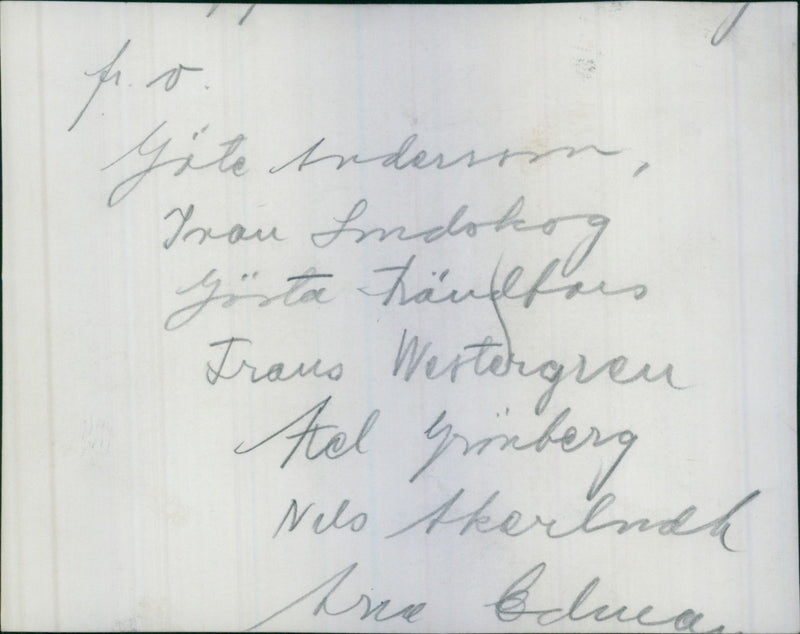 fr. v.
Göte Andersson,
Ivan Lindskog
Gösta Frändfors
Frans Westergren
Axel Grönberg
Nils Åkerlindh